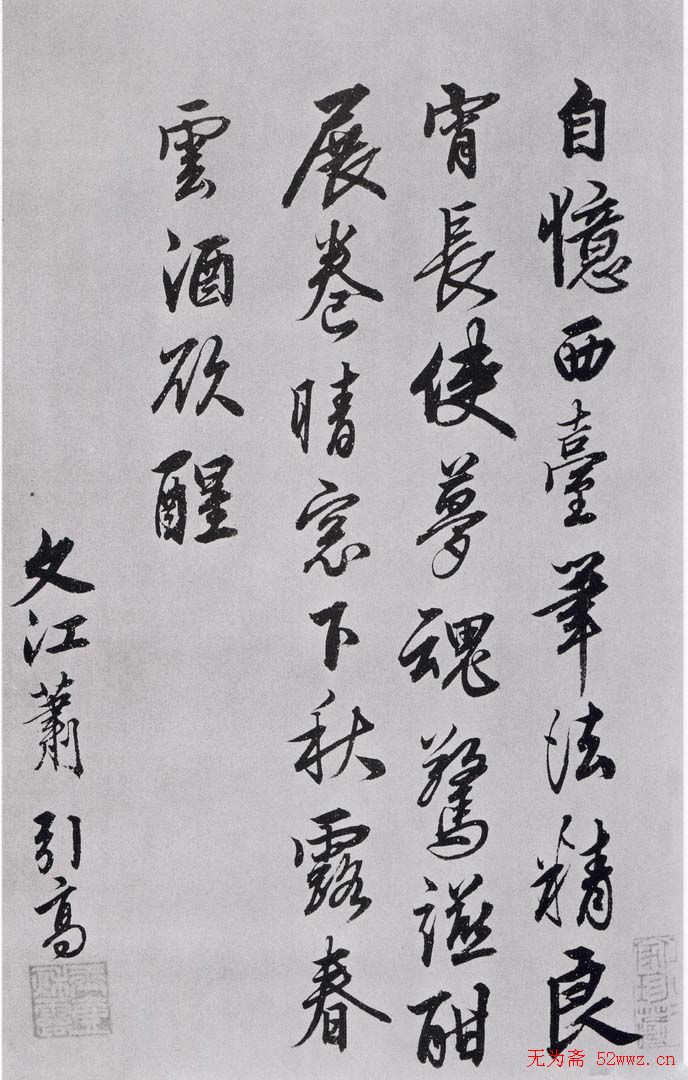 自憶西臺筆法精良
宵長使夢魂驚酣
展卷晴窓下秋露春
雲酒欲醒
文江蕭引高
无为斋 52wwz.cn